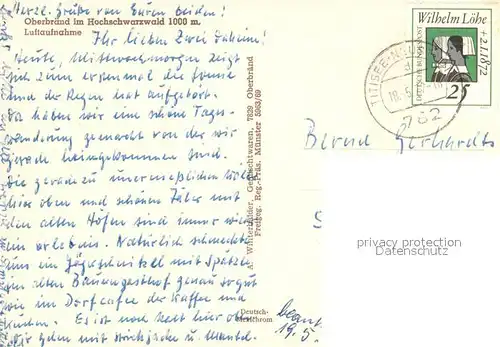 Herzl. Grüße von Euren beiden!
Oberbränd im Hochschwarzwald 1000 m.
Luftaufnahme
Ihr lieben Zwei daheim!
Heute, Mittwochmorgen zeigt
sich zum erstenmal die Sonne
und der Regen hat aufgehört.
Da haben wir eine schöne Tages-
wanderung gemacht von der wir
gerade heimgekommen sind.
Die geradezu unermeßlichen
hier oben und schönen Täler mit
den alten Höfen sind immer wieder
ein Erlebnis. Natürlich schmeckt
uns ein Jägerschnitzel mit Spätzle
im alten Bauerngasthof genau so gut
wie im Dorfcafee der Kaffee und
Kuchen. Es ist noch kalt hier oben
wir gehen mit Strickjacke u. Mantel.
A. Winterhalder, Gemischtwaren, 7829 Oberbränd
Freigeg. Reg.-Präs. Münster 5963/69
Deutsch-
beant
19.5.
Wilhelm Löhe
+2.1.1872
DEUTSCHE BUNDESPOST
25
TITISEE-NEU
18.5.
782
Bernd Gerhardts
privacy protection
Datenschutz